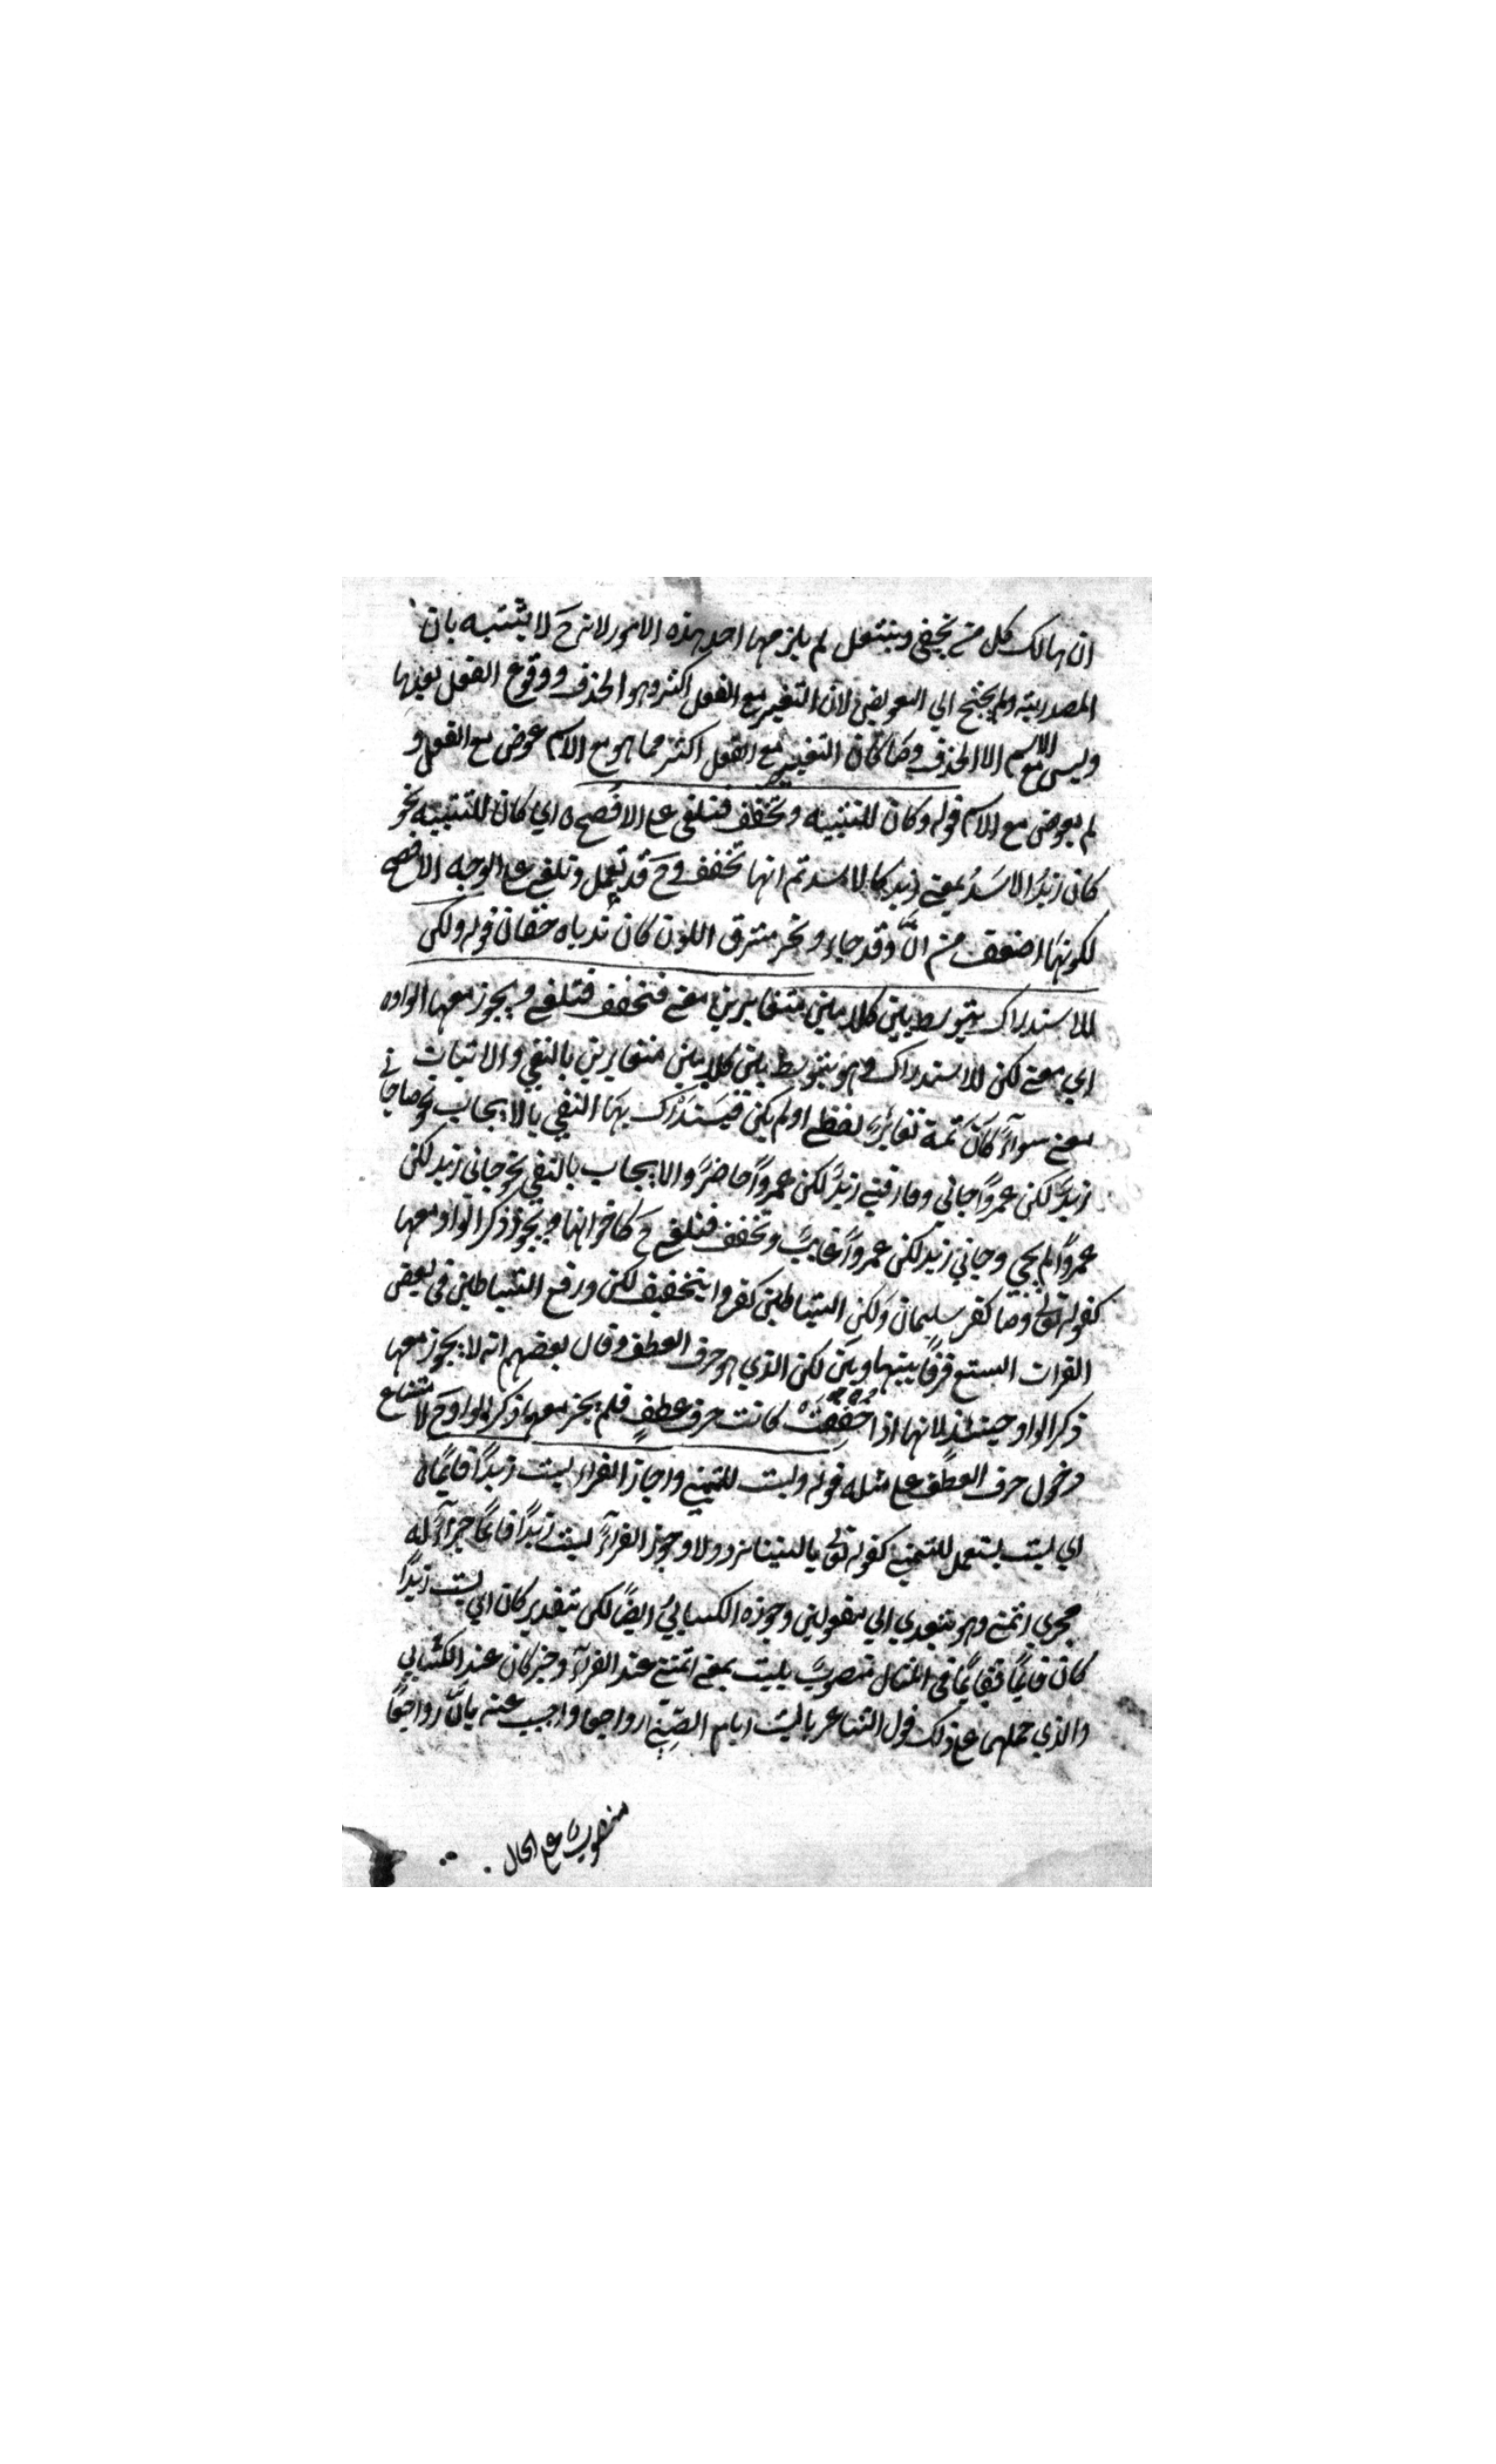 ان هالك كل من يحفى وينتعل لم يلزمها احد هذه الامور لانه ح لا يشتبه بان
المصدرية ولم يحتج الي التعويض لان التغيير مع الفعل اكثر وهو الحذف ووقوع الفعل بعدها
وليس مع الاسم الا الحذف وما كان التغيير مع الفعل اكثر مما هو مع الاسم عوض مع الفعل و
لم يعوض مع الاسم قوله وكان للتشبيه وتخفف فتلغى على الافصح ه اي كان للتشبيه نحو
كان زيدًا الاسدُ بمعنى زيد كالاسد ثم انها تخفف وح قد تعمل وتلغى على الوجه الافصح
لكونها اضعف من انَّ وقد جاء ونحر مشرق اللون كان ثدياه حقان قوله ولكن
للاستدراك يتوسط بين كلامين متغايرين معنى فتخفف فتلغى ويجوز معها الواو ه
اي معنى لكن للاستدراك وهو يتوسط بين كلامين متغايرين بالنفي والاثبات في
معنى سوآء كان ثمة تغاير لفظي او لم يكن فيستدرك بها النفي بالايجاب نحو ما جا
زيدٌ لكن عمروًا جاني وفارقني زيدٌ لكن عمروًا حاضرٌ والايجاب بالنفي نحو جاني زيد لكن
عمروًا لم يجي وجاني زيد لكن عمروًا غايبٌ وتخفف فتلغى ح كاخواتها ويجوز ذكر الواو معها
كقوله تعالى وما كفر سليمان ولكن الشياطين كفروا بتخفيف لكن ورفع الشياطين في بعض
القرات السبع فرقًا بينها وبين لكن الذي هو حرف العطف وقال بعضهم انه لا يجوز معها
ذكر الواو حينئذ لانها اذا خففت كانت حرف عطف فلم يجز معها ذكر الواو ح لامتناع
دخول حرف العطف على مثله قوله وليت للتمني واجاز الفراء ليت زيدًا قايمًا ه
اي ليت يستعمل للتمني كقوله تعالى ياليتنا نرد ولا وجوز الفرآء ليت زيدًا قايمًا اجرآء له
مجرى اتمنى وهو يتعدي الي مفعولين وجوزه الكسائيُ ايضًا لكن بتقدير كان اي ليت زيدًا
كان قايمًا فقايمًا في المثال منصوبٌ بليت بمعنى اتمنى عند الفرآء وخبر كان عند الكسائي
والذي حملهما على ذلك قول الشاعر ياليت ايام الصبى رواجعا واجيب عنه بانَّ رواجعًا
منصوب على الحال